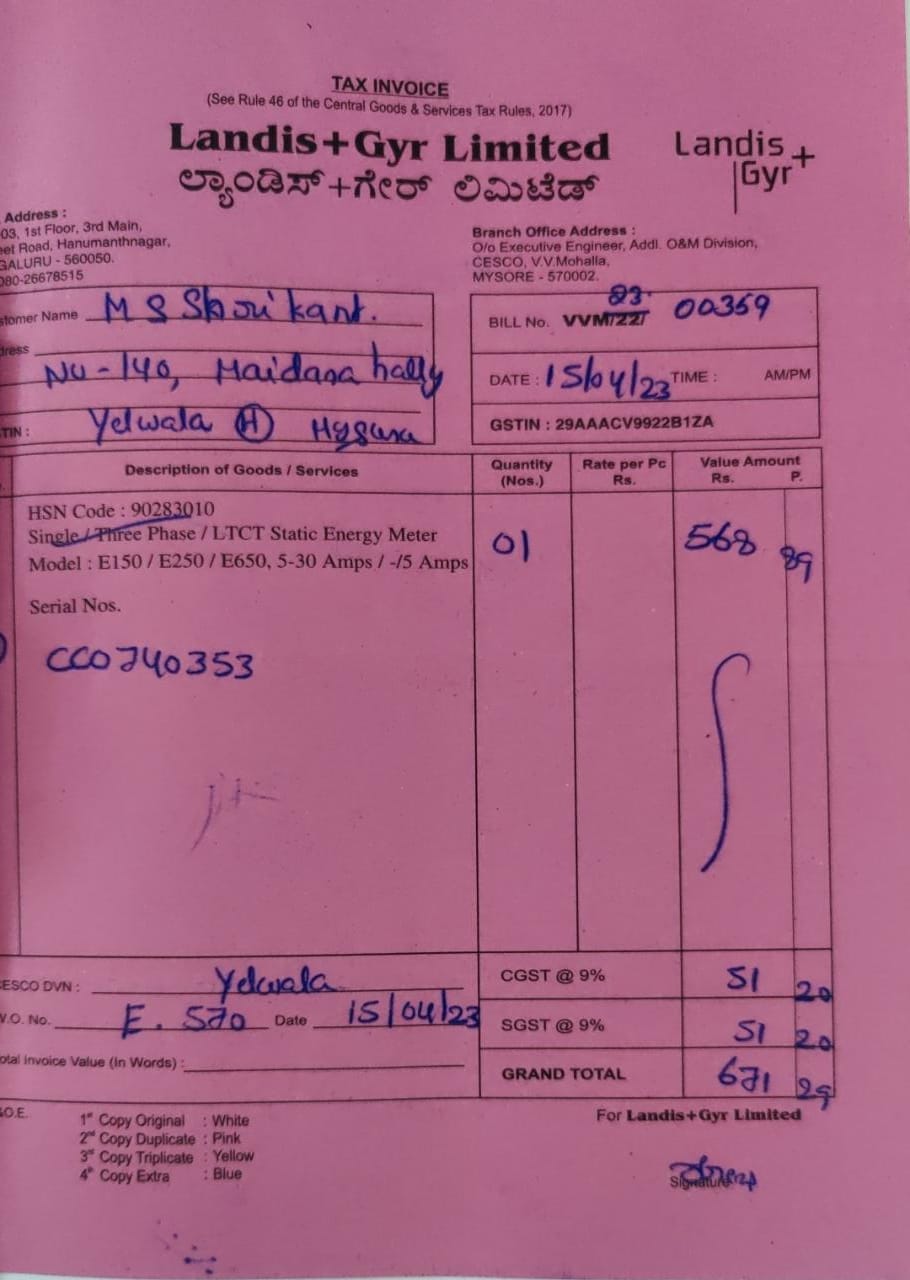 TAX INVOICE
(See Rule 46 of the Central Goods & Services Tax Rules, 2017)
Landis+Gyr Limited
ಲ್ಯಾಂಡಿಸ್+ಗೇರ್ ಲಿಮಿಟೆಡ್
Landis+
Gyr
Address :
03, 1st Floor, 3rd Main,
eet Road, Hanumanthnagar,
GALURU - 560050.
080-26678515
Branch Office Address :
O/o Executive Engineer, Addl. O&M Division,
CESCO, V.V.Mohalla,
MYSORE - 570002.
stomer Name M S Shrikant.
dress
No-140, Maidanahally
TIN : Yelwala (H) Mysuru
23
BILL No. VVM/22/ 00359
DATE : 15/04/23 TIME : AM/PM
GSTIN : 29AAACV9922B1ZA
Description of Goods / Services Quantity (Nos.) Rate per Pc Rs. Value Amount Rs. P.
HSN Code : 90283010
Single / Three Phase / LTCT Static Energy Meter 01 568 89
Model : E150 / E250 / E650, 5-30 Amps / -/5 Amps
Serial Nos.
CC0740353
ESCO DVN : Yelwala CGST @ 9% 51 20
V.O. No. E. 570 Date 15/04/23 SGST @ 9% 51 20
otal Invoice Value (In Words) : GRAND TOTAL 671 29
.O.E.
1st Copy Original : White
2nd Copy Duplicate : Pink
3rd Copy Triplicate : Yellow
4th Copy Extra : Blue
For Landis+Gyr Limited
Signature